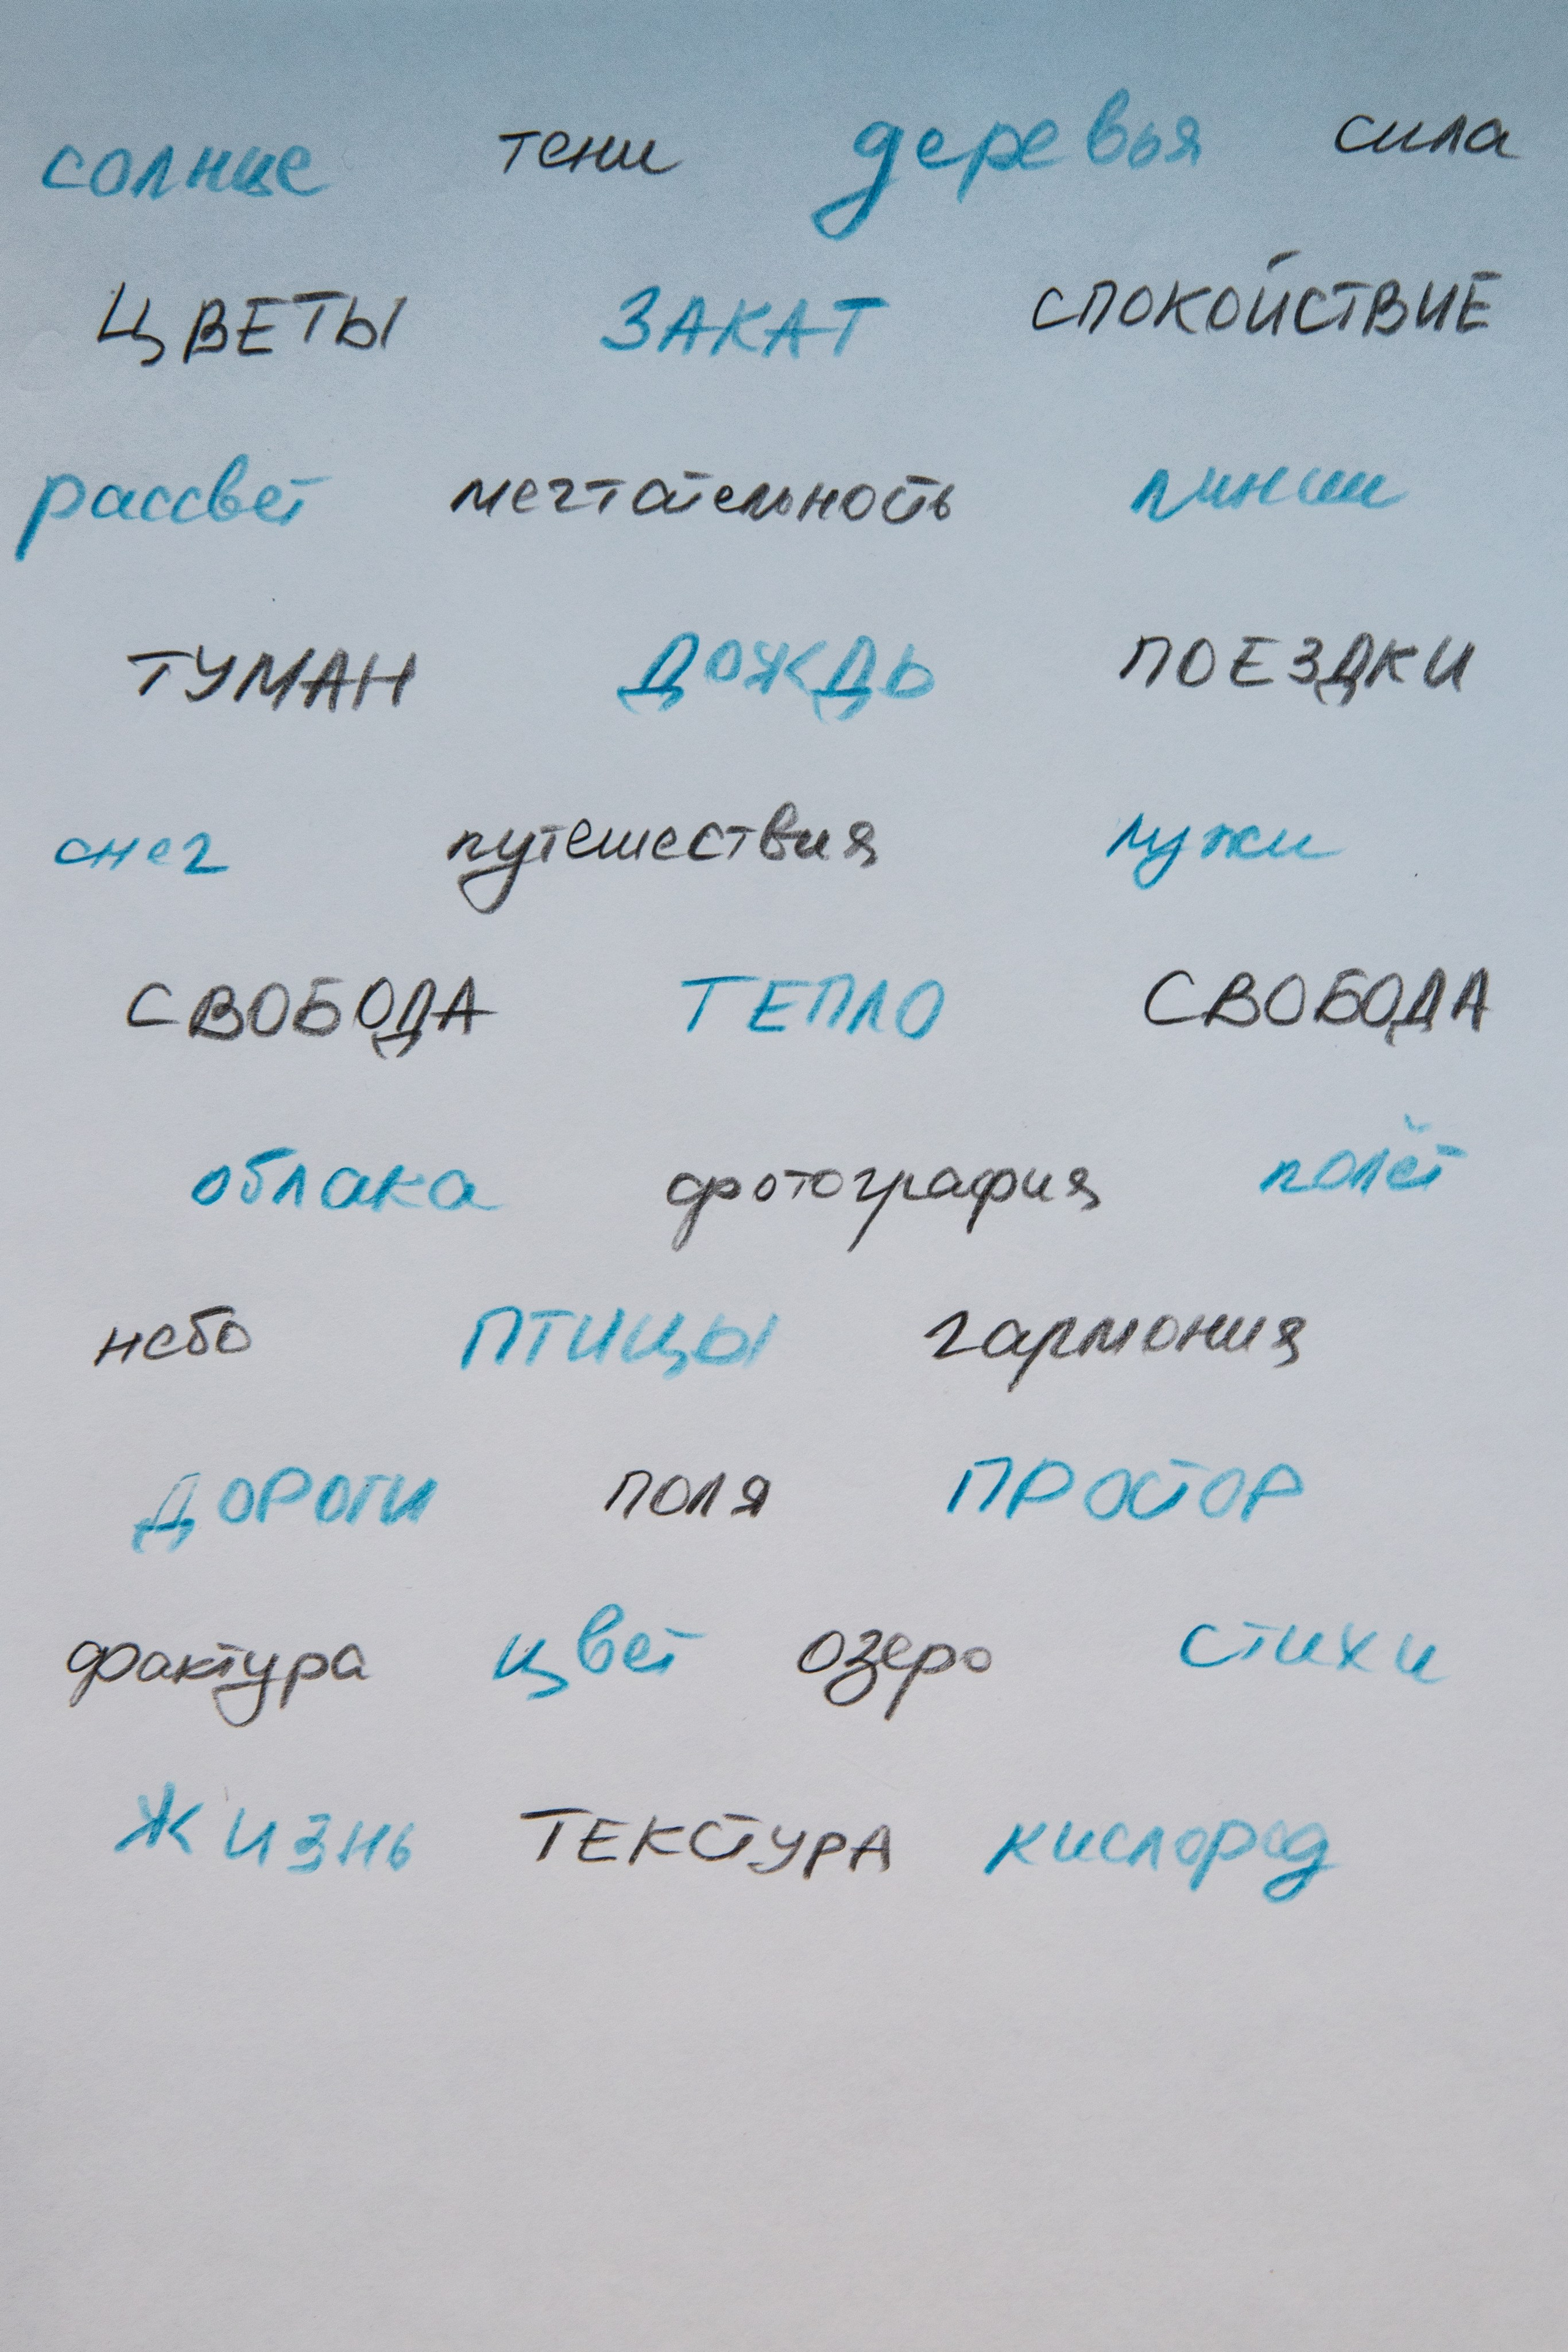 солнце тени деревья сила
ЦВЕТЫ ЗАКАТ СПОКОЙСТВИЕ
рассвет мечтательность линии
ТУМАН ДОЖДЬ ПОЕЗДКИ
снег путешествия лужи
СВОБОДА ТЕПЛО СВОБОДА
облака фотография полёт
небо ПТИЦЫ гармония
ДОРОГИ поля ПРОСТОР
фактура цвет озеро стихи
ЖИЗНЬ ТЕКСТУРА кислород